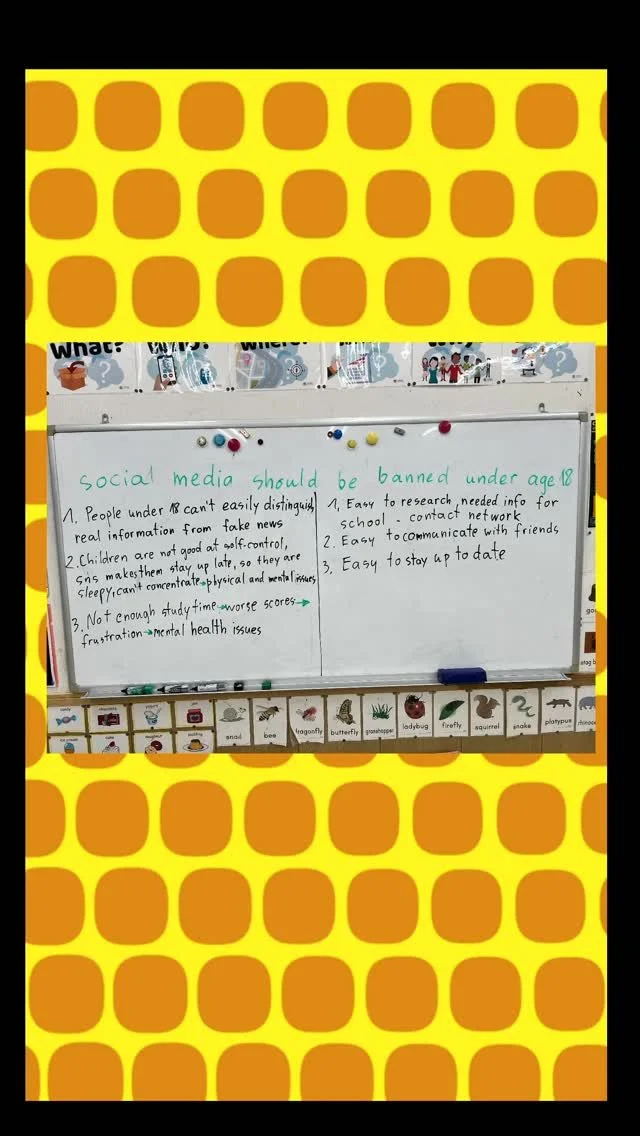 What?
Where?
social media should be banned under age 18
1. People under 18 can't easily distinguish
real information from fake news
2. Children are not good at self-control,
sns makes them stay up late, so they are
sleepy, can't concentrate→physical and mental issues
3. Not enough study time→worse scores→
frustration→mental health issues
1, Easy to research, needed info for
school - contact network
2. Easy to communicate with friends
3, Easy to stay up to date
candy
yogurt
jam
ice cream
cake
doughnut
pudding
snail
bee
dragonfly
butterfly
grasshopper
ladybug
firefly
squirrel
snake
platypus
rhinoc
stag b